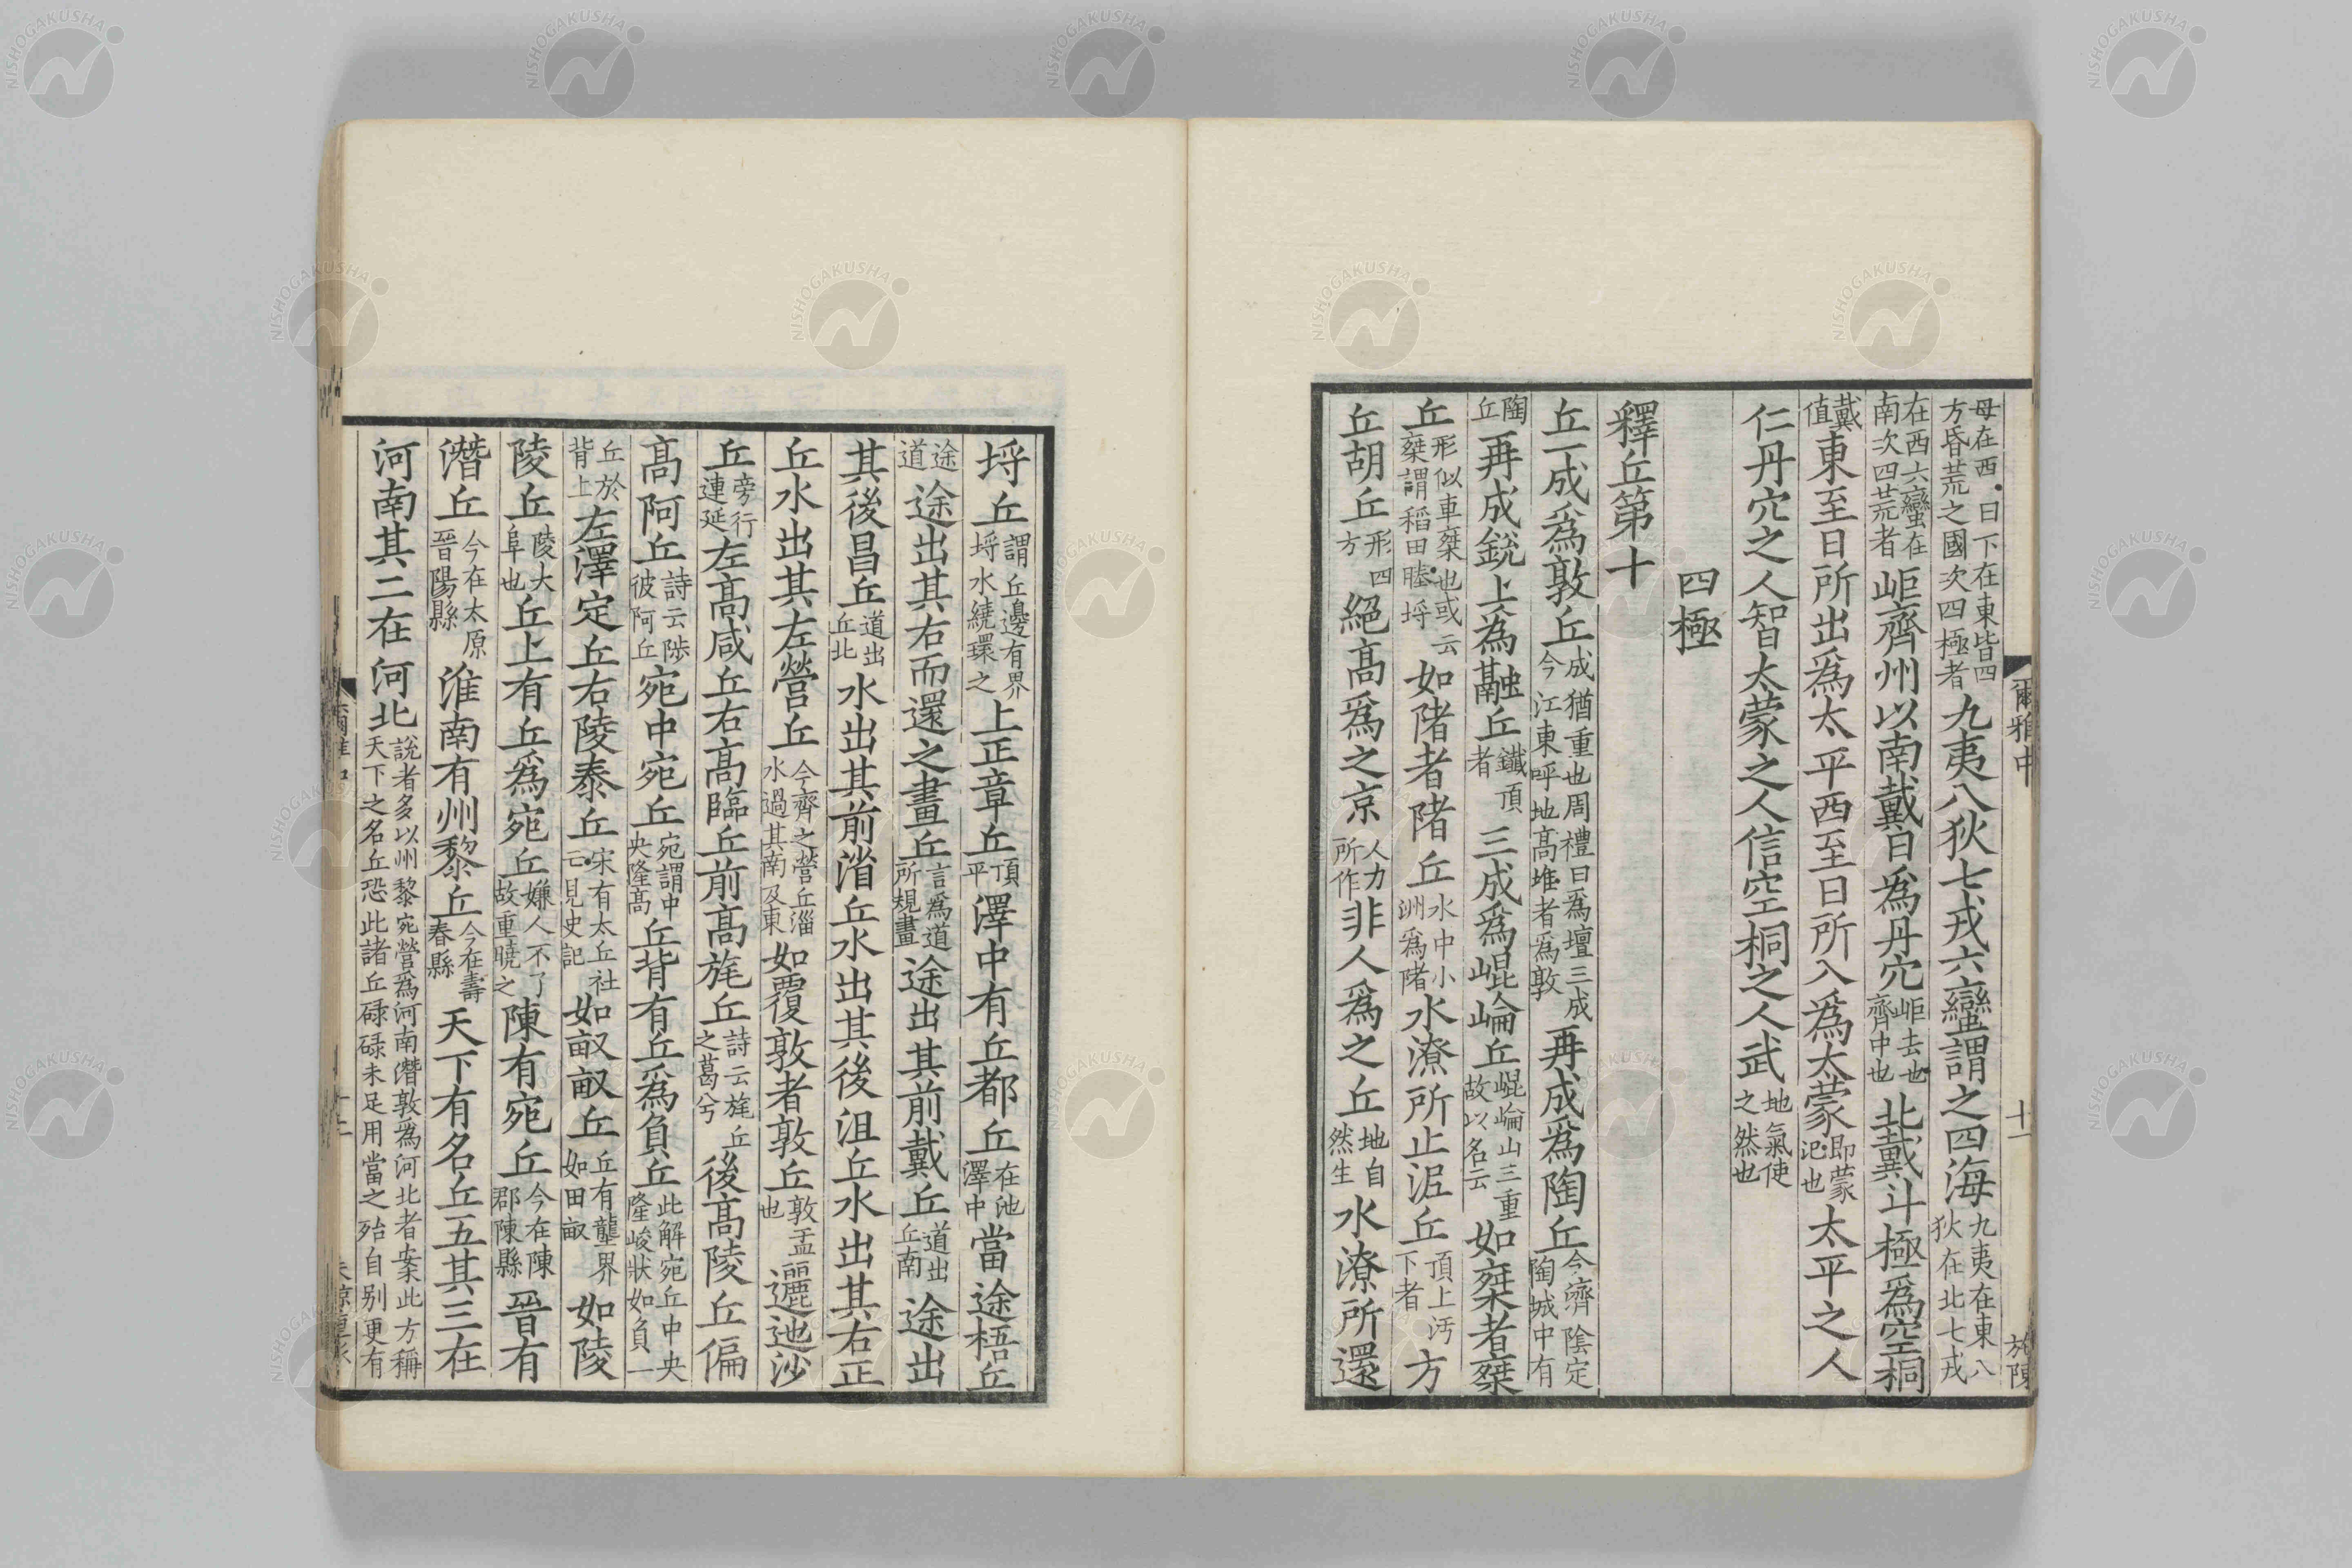 母在西日下在東皆四方昏荒之國次四極者九夷八狄七戎六蠻謂之四海九夷在東八狄在北七戎
在西六蠻在南次四荒者岠齊州以南戴日爲丹穴岠去也齊中也北戴斗極爲空桐
戴值東至日所出爲太平西至日所入爲太蒙即蒙汜也太平之人
仁丹穴之人智太蒙之人信空桐之人武地氣使之然也
四極
釋丘第十
丘一成爲敦丘成猶重也周禮曰爲壇三成今江東呼地高堆者爲敦再成爲陶丘今濟陰定陶城中有
陶丘再成銳上爲融丘鐵頂者三成爲崐崘丘崐崘山三重故以名云如椉者椉
丘形似車椉也或云椉謂稻田塍埒如陼者陼丘水中小洲爲陼水潦所止泥丘頂上汚下者方
丘胡丘形四方絕高爲之京人力所作非人爲之丘地自然生水潦所還
爾雅中
十一
埒丘謂丘邊有界埒水繞環之上正章丘頂平澤中有丘都丘在池澤中當途梧丘
途道途出其右而還之畫丘言爲道所規畫途出其前戴丘道出丘南途出
其後昌丘道出丘北水出其前渻丘水出其後沮丘水出其右正
丘水出其左營丘今齊之營丘淄水過其南及東如覆敦者敦丘敦盂也邐迤沙
丘旁行連延左高咸丘右高臨丘前高旄丘詩云旄丘之葛兮後高陵丘偏
高阿丘詩云陟彼阿丘宛中宛丘宛謂中央隆高丘背有丘爲負丘此解宛丘中央隆峻狀如負一
丘於背上左澤定丘右陵泰丘宋有太丘社亡見史記如畝畝丘丘有壟界如田畝如陵
陵丘陵大阜也丘上有丘爲宛丘嫌人不了故重曉之陳有宛丘今在陳郡陳縣晉有
潛丘今在太原晉陽縣淮南有州黎丘今在壽春縣天下有名丘五其三在
河南其二在河北說者多以州黎宛營爲河南潛敦爲河北者案此方稱天下之名丘恐此諸丘碌碌未足用當之殆自別更有